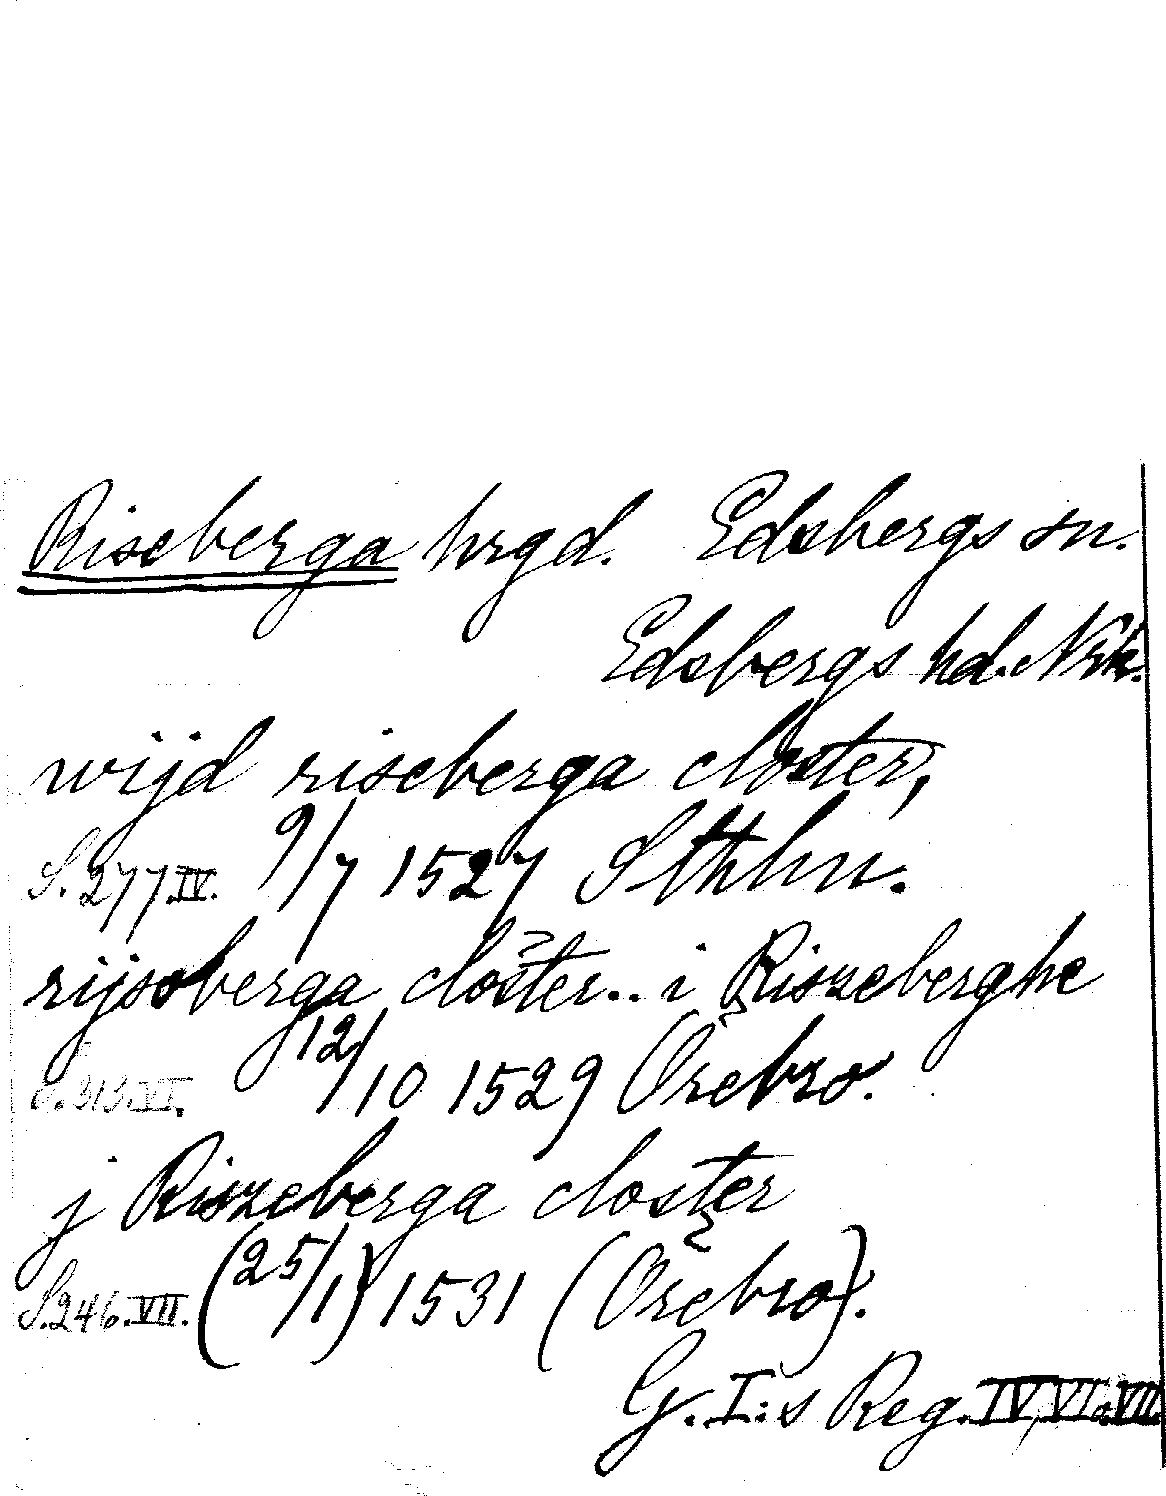 Riseberga hrgd. Edsbergs sn.
Edsbergs hd. Nrk.
wijd riseberga closter,
S. 277. IV. 9/7 1527 Sthlm.
rijsoberga closter.. i Riszeberghe
S. 313. VI. 12/10 1529 Örebro.
j Riszeberga closter
S. 246. VII. (25/1) 1531 (Örebro).
G. I:s Reg. IV, VI o. VII.